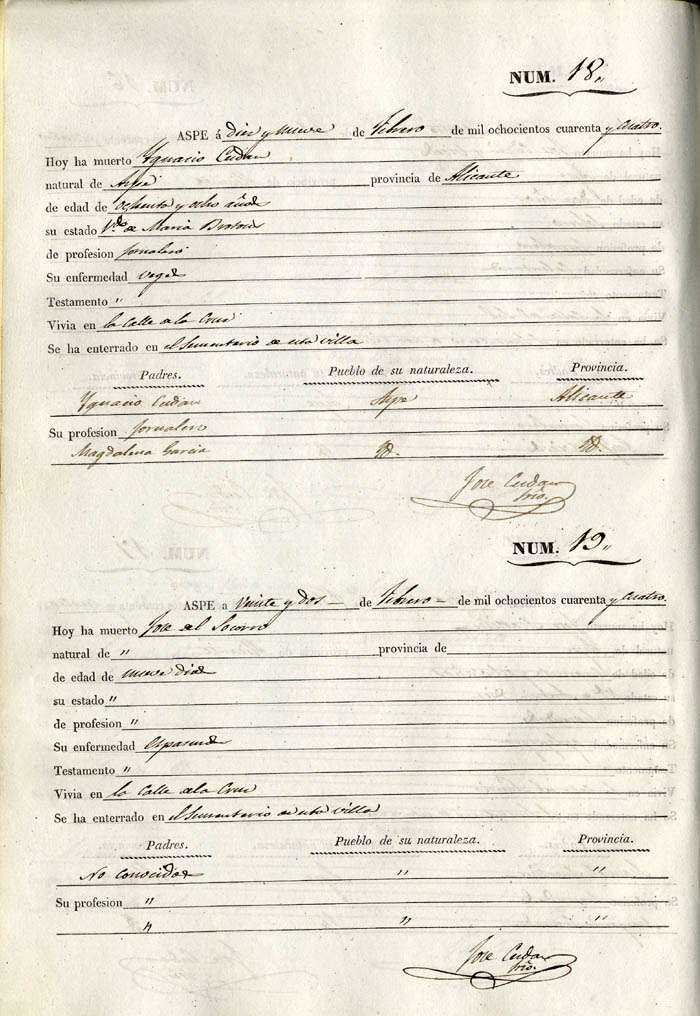 NUM. 18"
ASPE á diez y nueve de Febrero de mil ochocientos cuarenta y cuatro.
Hoy ha muerto Ygnacio Cerdan
natural de Aspe provincia de Alicante
de edad de ochenta y ocho años
su estado Vdo de Maria
de profesion jornalero
Su enfermedad vegez
Testamento "
Vivia en la Calle de la Cruz
Se ha enterrado en el Sementerio de esta villa
Padres. Pueblo de su naturaleza. Provincia.
Ygnacio Cerdan Aspe Alicante
Su profesion Jornalero
Magdalena Garcia Yd. Yd.
Jose Cerdan
Srio.
NUM. 19"
ASPE a veinte y dos — de Febrero — de mil ochocientos cuarenta y cuatro.
Hoy ha muerto Jose del Socorro
natural de " provincia de
de edad de nueve dias
su estado "
de profesion "
Su enfermedad
Testamento "
Vivia en la Calle de la Cruz
Se ha enterrado en el Sementerio de esta villa
Padres. Pueblo de su naturaleza. Provincia.
No Conocidos " "
Su profesion "
" " "
Jose Cerdan
Srio.